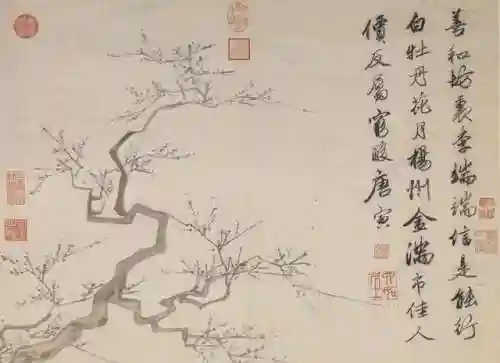 善和坊裏李端端信是能行
白牡丹花月揚州金滿市佳人
價反屬窮酸唐寅